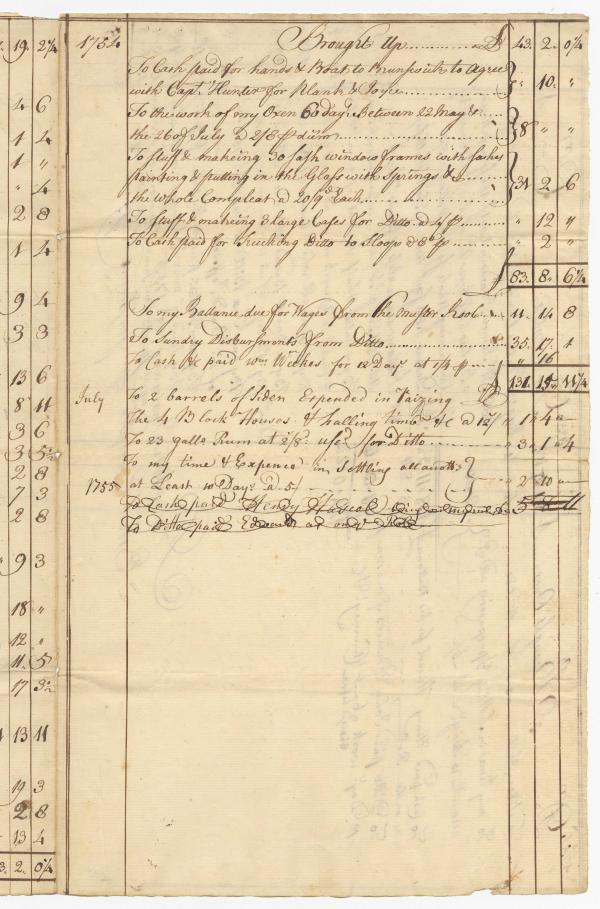 1754 Brought Up £ 43. 2. 0¼
To Cash paid for hands & Boat to Brunswick to Agree
with Capt. Hunter for Plank & Joyce " 10. "
To the work of my Oxen 60 Days. Between 22 May &
the 26 of July @ 2/8 p diem 8 " "
To stuff & makeing 30 sash window frames with sashes
painting & putting in the Glass with Springs &
the whole Compleat @ 20/9d Each 31 2 6
To stuff & makeing 3 large Cases for Ditto @ 4/ p " 12 "
To Cash paid for Trucking Ditto to Sloop @ 8d p " 2 "
£ 83. 8. 6¼
To my Ballance due for Wages from the Muster Roole 11. 14 8
To Sundry Disbursments from Ditto 35. 17. 1
To Cash &c paid Wm. Weekes for 12 Days at 1/4 p " 16
131. 15 11¼
July To 2 barrels of Siden Expended in Raizing
The 4 Block Houses & halling timbr &c a 12/ " 1 " 4 "
To 23 galls Rum at 2/8. usd for Ditto " 3 " 1 " 4
To my time & Expence in Settling accautts
1755 at Least 10 Days a 5/ " 2 " 10 "
To Cash paid Hendry Hascol
To Ditto paid
19. 2¼
4 6
1 4
1 "
" 4
2 8
1 4
9 4
3 3
13 6
8 11
3 6
3 5½
2 8
7 3
2 8
9 3
18 "
12 "
11. 5
17 3½
13 11
19 3
2 8
13 4
3. 2. 0¼